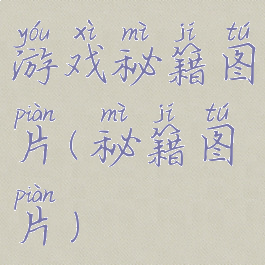 yóu xì mì jí tú
游戏秘籍图
piàn mì jí tú
片(秘籍图
piàn
片)